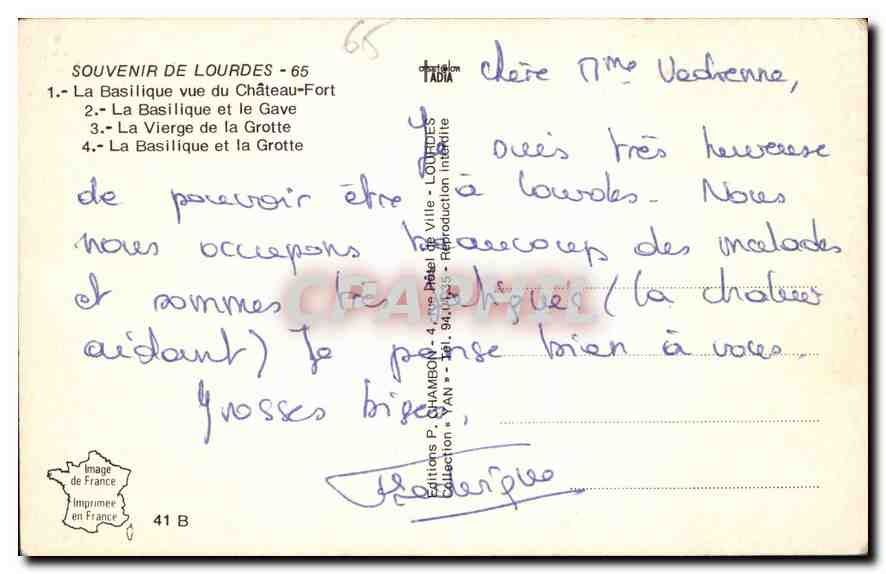 65
SOUVENIR DE LOURDES - 65
1.- La Basilique vue du Château-Fort
2.- La Basilique et le Gave
3.- La Vierge de la Grotte
4.- La Basilique et la Grotte
chère Mme Vedrenne,
Je suis très heureuse
de pouvoir être à Lourdes. Nous
nous occupons beaucoup des malades
et sommes très fatigués (la chaleur
aidant) Je pense bien à vous.
Grosses bises,
Editions P. CHAMBON - 4, rue Hôtel de Ville - LOURDES
Collection « YAN » - Tél. 94.05.35 - Reproduction interdite
TADIA
CPAPHIL
Image
de France
Imprimée
en France
41 B